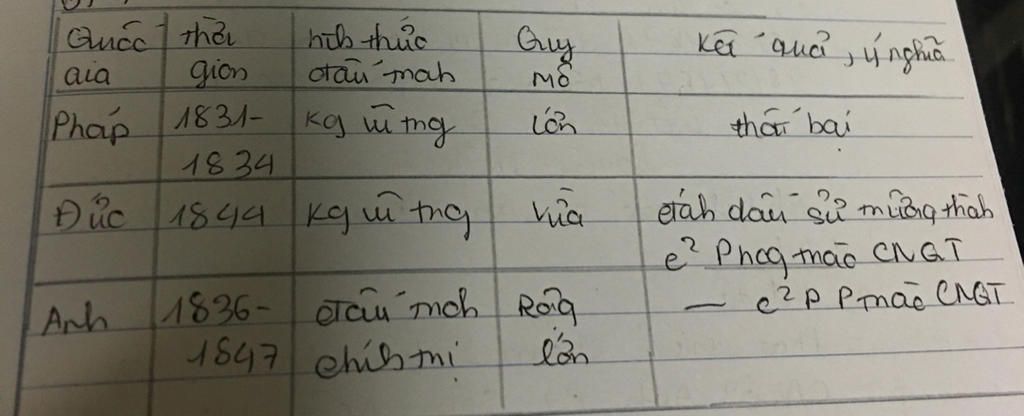 Quốc thời hình thức Quy Kết quả, ý nghĩa
gia gian đấu tranh mô
Pháp 1831- kg vũ tng lớn thất bại
1834
Đức 1844 kg vũ tng vừa đánh dấu sự trưởng thành
c² Phog trào CNQT
Anh 1836- đấu tranh Rộng — c² P Ptrào CNQT
1847 chính trị lớn